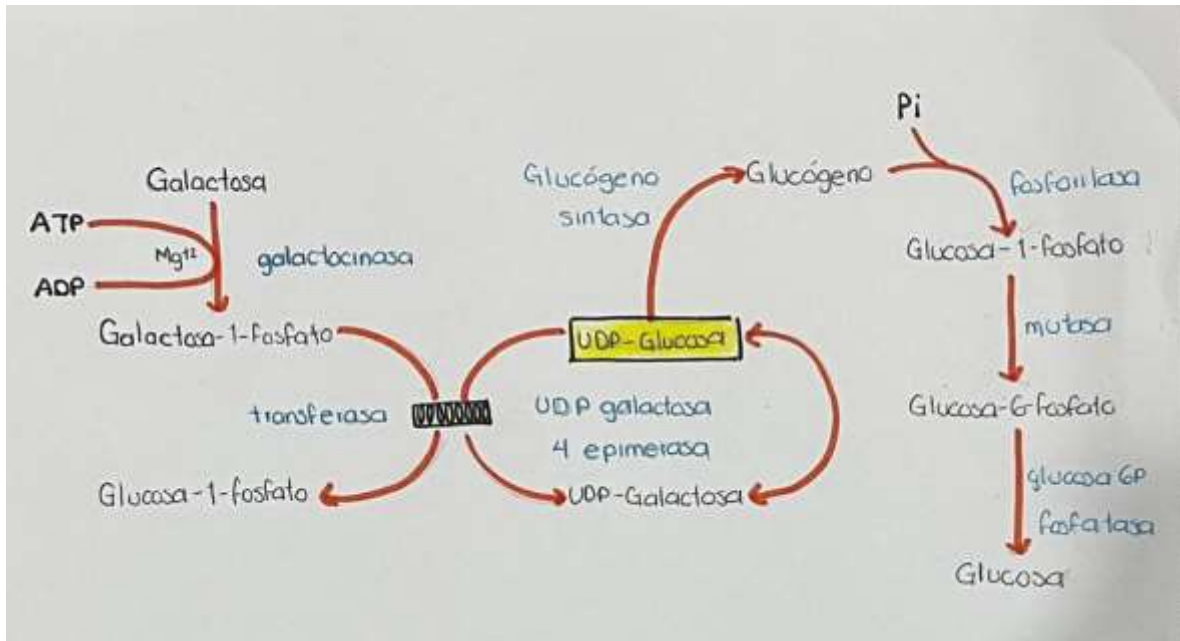 Galactosa
ATP
Mg+2
galactocinasa
ADP
Galactosa-1-fosfato
transferasa
Glucosa-1-fosfato
Glucógeno
sintasa
UDP-Glucosa
UDP galactosa
4 epimerasa
UDP-Galactosa
Pi
Glucógeno
fosforilasa
Glucosa-1-fosfato
mutasa
Glucosa-6-fosfato
glucosa 6P
fosfatasa
Glucosa